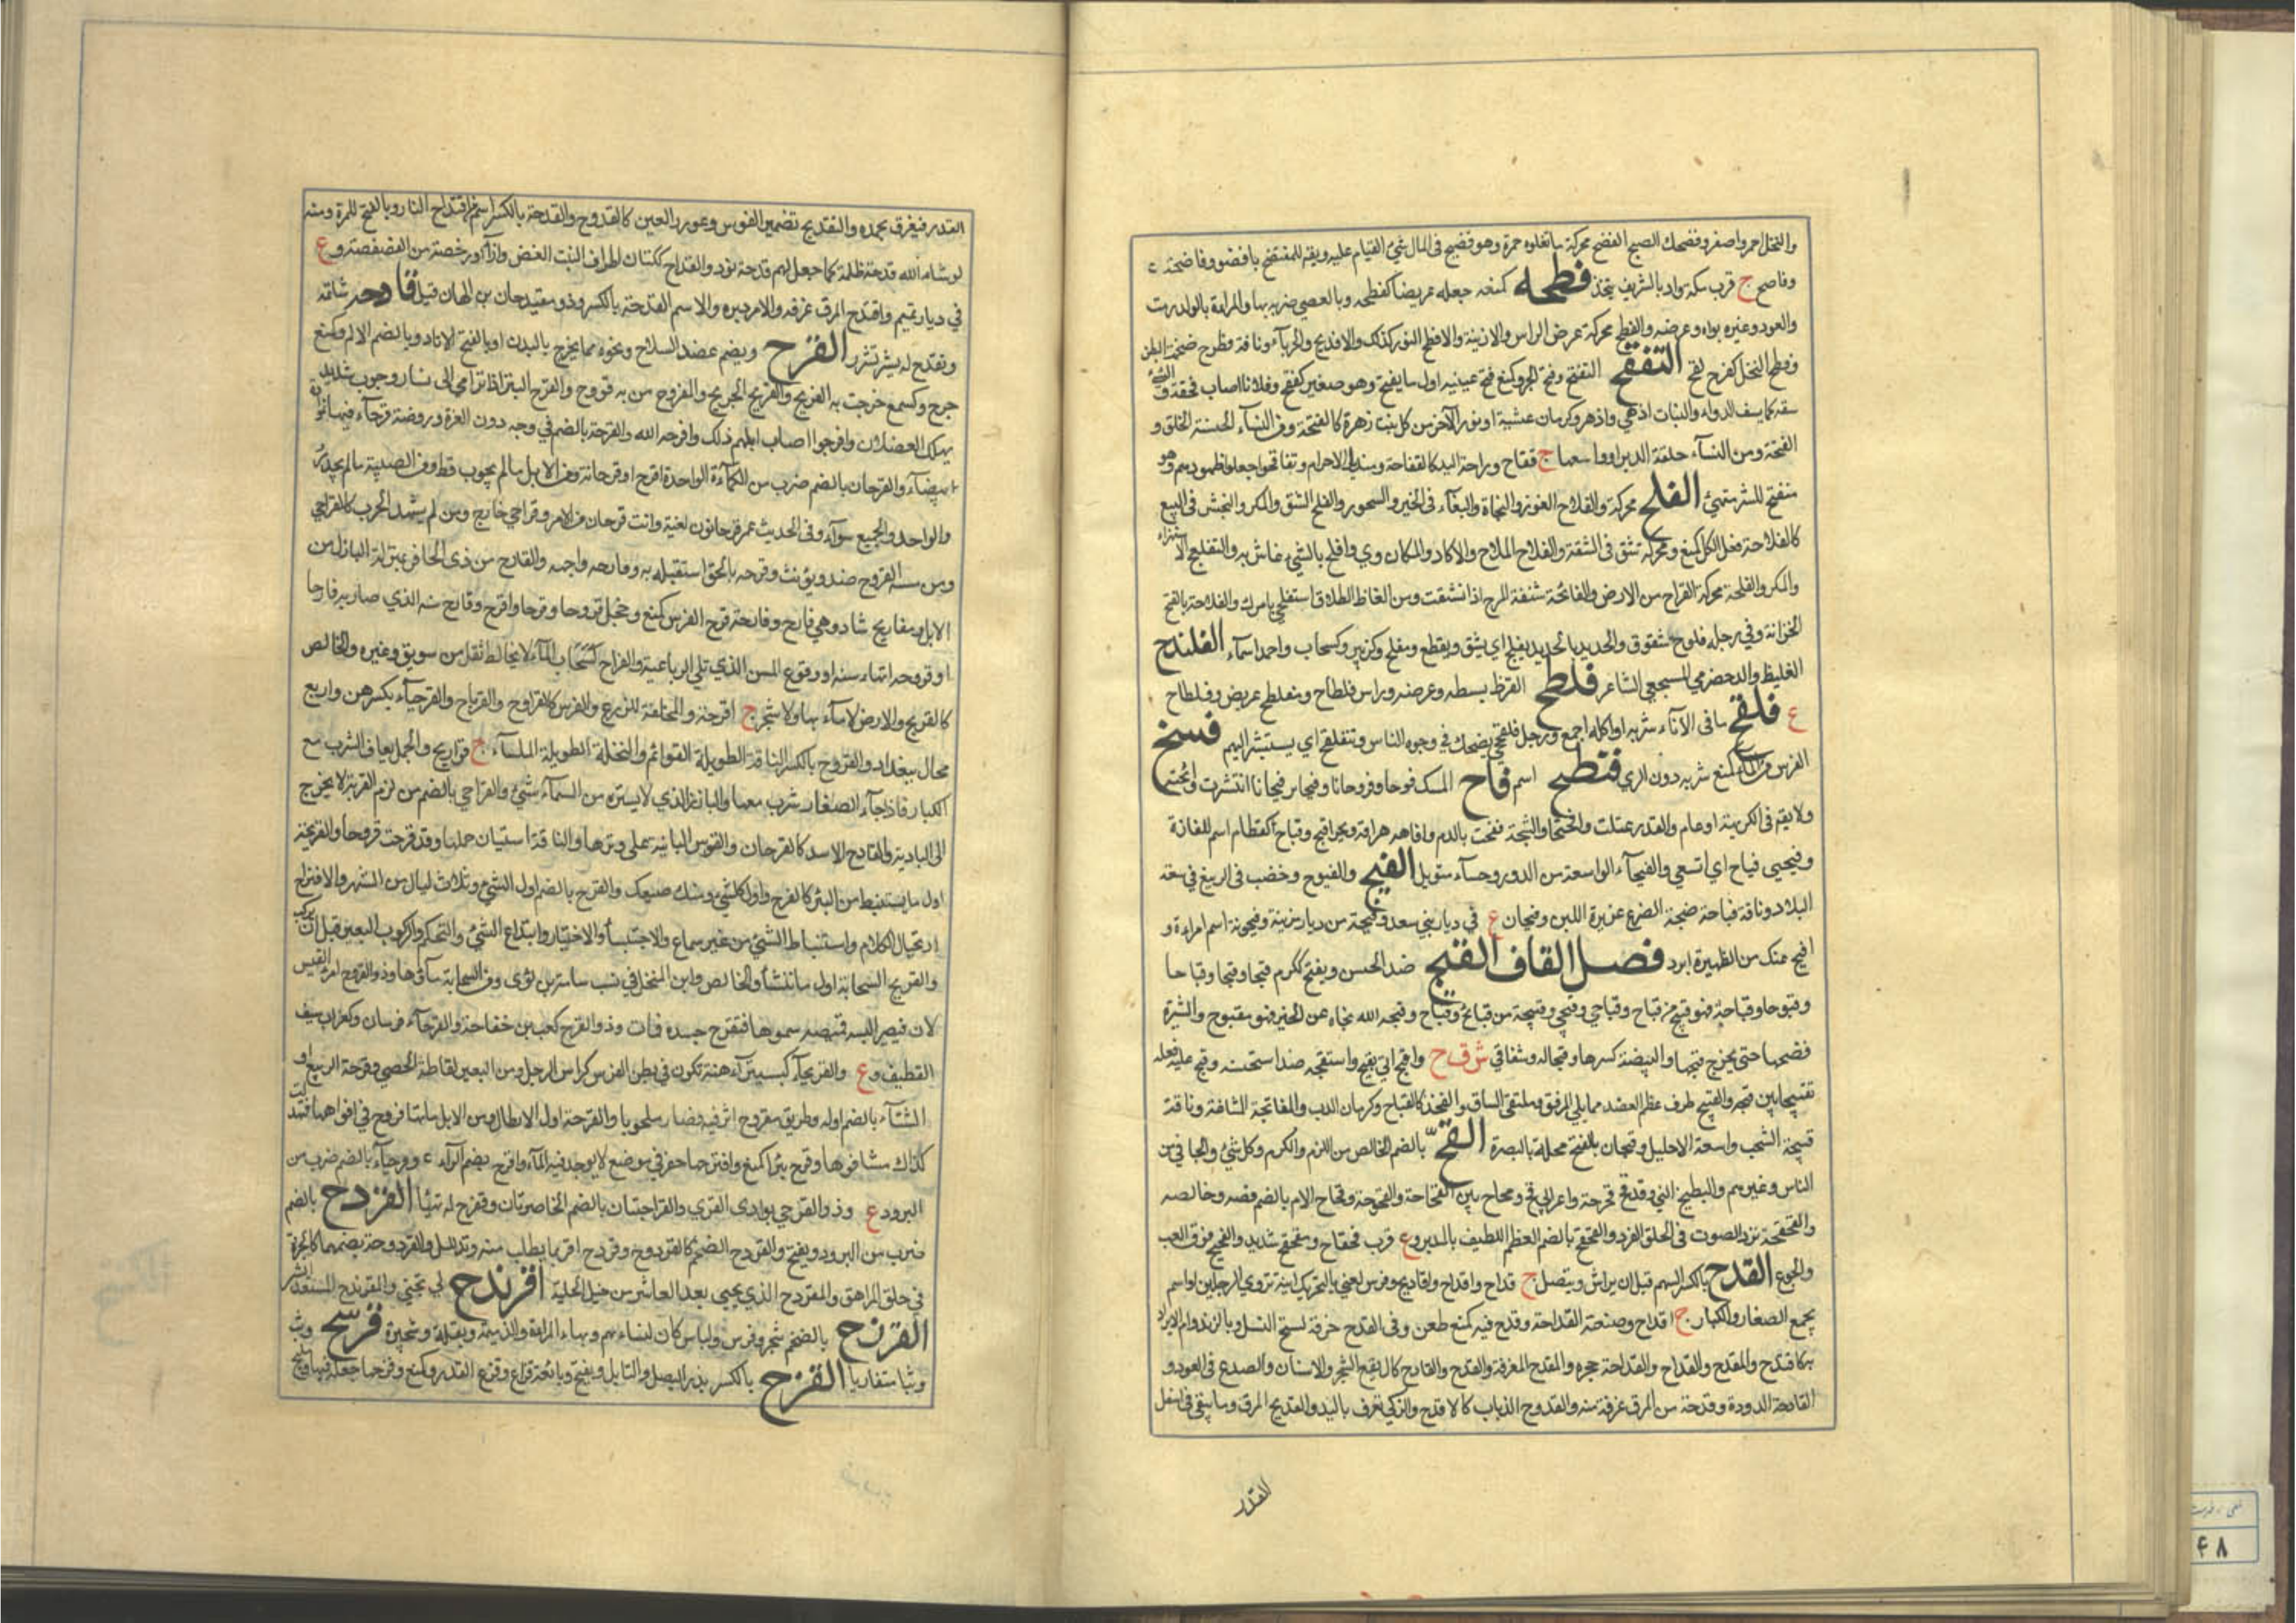 والنخل احمر واصفر وفضحك الصبح الفضح محركة ما تعلوه حمرة وهو فضيح فى المال سئ القيام عليه ويقه للمفتضح يا فضوو فاضحة ع
وفاضح ج قرب مكه وواد بالشريف بنجد فطحه كمنعه جعله عريضا كفطحه وبالعصى ضربه بها والمراة بالولد رمت
والعود وغيره براه وعرضه والفطح محركة عرض الراس والارنبة والافطح الثور كذلك والافديح والحرباء وناقة فطوح ضخمة البطن
وفطح النخل كفرح لقح التفقح التفتح وفقح الجرو كمنع فتح عينيه اول ما يفتح وهو صغير كفقح وفلانا اصاب فقحته والشئ
سفه كما يسف الدواء والنبات ازهى وازهر وكرمان عشبة او نور الاذخر من كل نبت زهرة كالفقحة ومن النساء الحسنة الخلق و
الفقحة ومن النساء حلقة الدبر او واسعها ج فقاح وراحة اليد كالفقاحة ومنديل الاحرام وتفاقحوا جعلوا ظهورهم وهو
متفقح للشر متهئ الفلح محركة والفلاح الفوز والنجاة والبقاء فى الخير والسحور والفلح الشق والمكر والنجش فى البيع
كالفلاحة فعل الكل كمنع ومحركة شق فى الشفة والفلاح الملاح والاكار والمكان وى وافلح بالشئ عاش به والتفليح الاستهزاء
والمكر والفلحة محركة القراح من الارض والفالحة شنفة المرخ اذا انشقت ومن الفاظ الطلاق استفلحى بامرك والفلاحة بالفتح
الحراثة وفي رجله فلوح شقوق والحديد بالحديد يفلح اى يشق ويقطع ومفلح وكزبير وكسحاب واحمد اسماء الفلندح
الغليظ والد حضرمى المسجعى الشاعر فلطح القرظ بسطه وعرضه وراس فلطاح ومفلطح عريض وفلطاح
ع فلقح ما فى الاناء شربه او اكله اجمع ورجل فلقحى يضحك في وجوه الناس ويتفلقح اى يستبشر اليهم فسنح
الفرس من الماء كمنع شربه دون الرى فنطح اسم فاح المسك فوحا وفووحا وفوحانا وفيحا وفيحانا انتشرت رائحته
ولا يقم فى الكريهة او عام والقدر غلت وافحتها والشجة نفحت بالدم وافاحه هراقه وبحر افيح وفياح كقطام اسم للغارة
وفيحى فياح اى اتسعى والفيحاء الواسعة من الدور وحساء متوبل الفيح والفيوح وخصب فى الربيع في سعة
البلاد وناقة فياحة ضخمة الضرع غزيرة اللبن وفيحان ع في ديار بني سعد وفيحة من ديار مزينة وفيحونة اسم امراءة و
افيح عنك من الظهيرة ابرد فصل القاف القبح ضد الحسن ويفتح ككرم قبحا وقبحا وقباحا
وقبوحا وقباحة فهو قبيح من قباح وقباحى وقبحى وقبيحة من قبائح وقباح وقبحه الله نحاه عن الخير فهو مقبوح والبثرة
فضخها حتى يخرج قيحها والبيضة كسرها وقبحا له وشقاقي ش ق ح واقبح اتى بقبيح واستقبحه ضد استحسنه وقبح عليه فعله
تقبيحا بين قبحه والقبيح طرف عظم العضد مما يلي المرفق وملتقى الساق والفخذ كالقباح وكرمان الدب والمقابحة المشاتمة وناقة
قبيحة الشخب واسعة الاحليل وقبحان بالفتح محلة بالبصرة القح بالضم الخالص من اللؤم والكرم وكل شئ والجافي من
الناس وغيرهم والبطيخ النى وقد قح قحوحة واعرابي قح وقحاح بين القحاحة والقحوحة وقحاح الامر بالضم فصه وخالصه
والقحقحة تردد الصوت فى الحلق القرد والقحقح بالضم العظم المطيف بالدبر وع قرب قحقاح ومقحقح شديد والقحيح فوق العب
والجوع القدح بالكسر السهم قبل ان يراش وينصل ج قداح واقداح واقاديح وفرس لغنى بالتحريك انية تروى الرجلين او اسم
يجمع الصغار والكبار ج اقداح وصنعته القداحة وقدح فيه كمنع طعن وفى القدح خرقه لسنخ النصل وبالزند رام الايراد
به كاقتدح والمقدح والقداح والقداحة حجره والمقدح المغرفة والقدح والقادح اكال يقع الشجر والاسنان والصدع فى العود و
القادحة الدودة وقدحة من المرق غرفة منه والقدوح الذباب كالاقدح والركى تغرف باليد والقديح المرق وما يبقى فى اسفل
القدر
القدر فيغرف بجهد والتقديح تضمير الفرس وغوور العين كالقدوح والقدحة بالكسر اسم من اقتداح النار وبالفتح للمرة ومنه
لو شاء الله لجعل للناس قدحة ظلمة كما جعل لهم قدحة نور والقداح ككتان اطراف النبت الغض وأرآد رخصة من الفصفصة وع
في ديار تميم واقتدح المرق غرفه والامر دبره والاسم القدحة بالكسر وذو مقيدحان بن الهان قيل قادحه شاتمه
وتقدح له بشر تشرر القرح ويضم عض السلاح ونحوه مما يخرج بالبدن او بالفتح الاثار وبالضم الالم وكمنع
جرح وكسمع خرجت به القروح والقريح الجريح والمقروح من به قروح والقرح البثر اذا ترامى الى فساد وجرب شديد
يهلك الفصلان واقرحوا اصاب ابلهم ذلك واقرحه الله والقرحة بالضم في وجه دون الغرة وروضة قرحاء فيها نوارة
بيضاء والقرحان بالضم ضرب من الكمأة الواحدة اقرح او قرحانة ومن الابل ما لم يجرب قط ومن الصبية ما لم يجدر
والواحد والجميع سواء وفى الحديث عمر قرحانون لغية وانت قرحان من الامر وقراحى خارج ومن لم يشهد الحرب كالقراحى
ومن مسه القروح ضد ويؤنث وقرحه بالحق استقبله به وقارحه واجهه والقارح من ذى الحافر بمنزلة البازل من
الابل ومقاريح شاذ وهي قارح وقارحة قرح الفرس كمنع وخجل قروحا وقرحا واقرح وقارحه سنه الذي صار به قارحا
او قروحه انتهاء سنه او وقوع السن الذي تلي الرباعية والقراح كسحاب الماء لا يخالطه ثفل من سويق وغيره والخالص
كالقريح والارض لا ماء بها ولا شجر ج اقرحة والمخلفة للزرع والغرس كالقرواح والقرياح والقرحياء بكسرهن واربع
محال ببغداد والقرواح بالكسر الناقة الطويلة القوائم والنخلة الطويلة الملساء ج قراويح والجمل يعاف الشرب مع
الكبار فاذا جاء الصغار شرب معها والبارز الذي لا يستره من السماء شئ والقراحي بالضم من لزم القرية لا يخرج
الى البادية والقارح الاسد كالقرحان والقوس البائنة عن وترها والناقة استبان حملها وقد قرحت قروحا والقريحة
اول ما يستنبط من البئر كالقرح واول كل شئ ومنك طبعك والقرح بالضم اول الشئ وثلاث ليال من الشهر والاقتراح
ارتجال الكلام واستنباط الشئ من غير سماع والاجتباء والاختيار وابتداع الشئ والتحكم والركوب البعير قبل ان يركب
والقريح السحابة اول ما تنشأ والخالص وابن المنخل في نسب سامة بن لؤى ومن السحابة ماؤها وذو القروح امرؤ القيس
لان قيصر البسه قميصا مسموما فتقرح جسده فمات وذو القرح كعب بن خفاجة والقرحاء فرسان وكغراب سيف
القطيف وع والقريحاء كبسيتراء هنة تكون في بطن الفرس كراس الرجل ومن البعير لقاطة الحصى وقرحة الربيع او
الشتاء بالضم اوله وطريق مقروح اثر فيه فصار ملحوبا والمقرحة اول الارطاب ومن الابل ما بها قروح في افواهها فتهدلت
كذلك مشافرها وقرح بئرا كمنع واقترحها حفر في موضع لا يوجد فيه الماء واقرح بضم الراء ع وقرحياء بالضم ضرب من
البرود ع وذو القرحى بوادى القرى والقراحتان بالضم الخاصرتان وتقرح له تهيا القردح بالضم
ضرب من البرود ويفتح والقردح الضخم كالقردوح وقردح اقر بما يطلب منه وتذلل والقردوحة بضمهما كالجوزة
في حلق المراهق والمقردح الذي يجيى بعد العاشر من خيل الحلبة اقرندح لي تجنى والمقرندح المستعد للشر
القرزح بالضم شجر وفرس ولباس كان لنساء هم وبهاء المراءة والذميمة وبقلة وشجيرة قرشح وثب
وثبا متقاربا القزح بالكسر بذر البصل والتابل ويفتح وبائعه قزاح وقزح القدر كمنع وقزحها جعله فيها ومليح
نعى . فهرست
۴۸